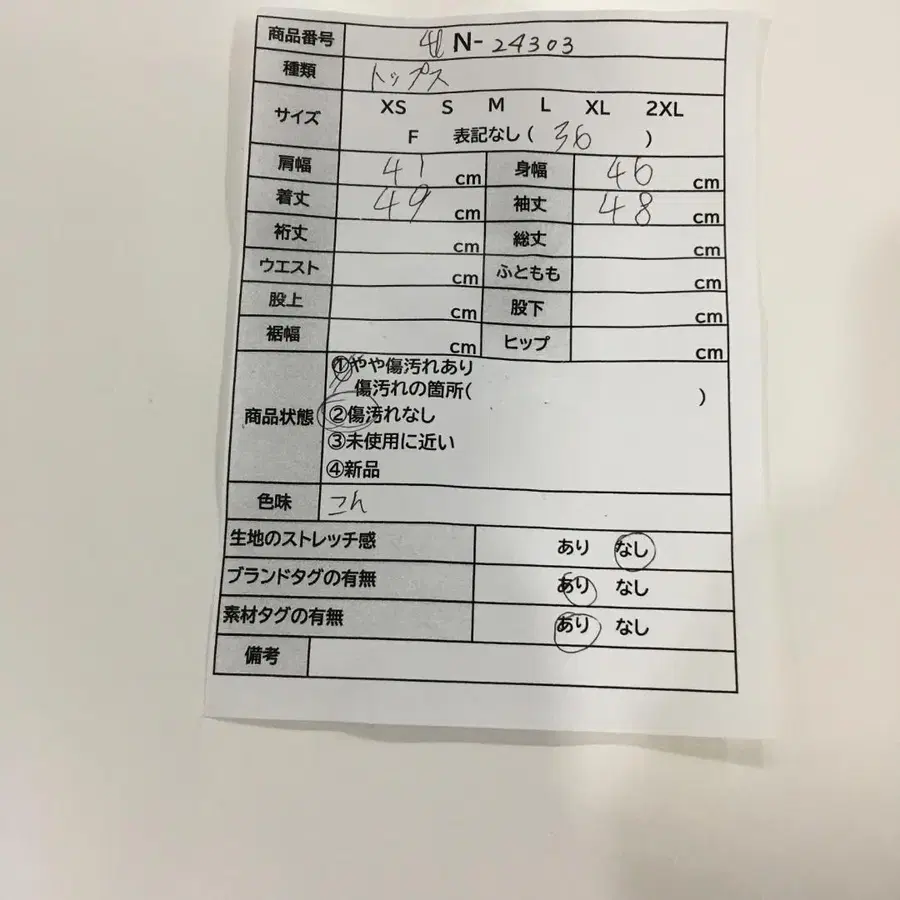 商品番号 N-24303
種類 トップス
サイズ XS S M L XL 2XL
F 表記なし( 36 )
肩幅 41 cm 身幅 46 cm
着丈 49 cm 袖丈 48 cm
裄丈 cm 総丈 cm
ウエスト cm ふともも cm
股上 cm 股下 cm
裾幅 cm ヒップ cm
商品状態 ①やや傷汚れあり
傷汚れの箇所( )
②傷汚れなし
③未使用に近い
④新品
色味 こん
生地のストレッチ感 あり なし
ブランドタグの有無 あり なし
素材タグの有無 あり なし
備考